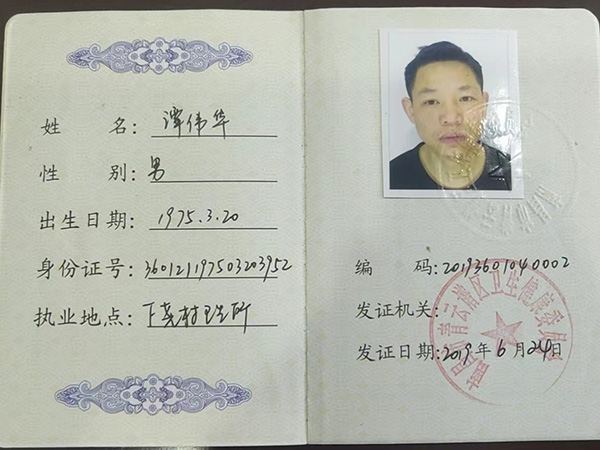 姓 名: 谭伟华
性 别: 男
出生日期: 1975.3.20
身份证号: 360121197503203952
执业地点: 下英村卫生所
编 码: 20193601040002
发证机关:
青云谱区卫生健康委员
发证日期: 2019年6月24日